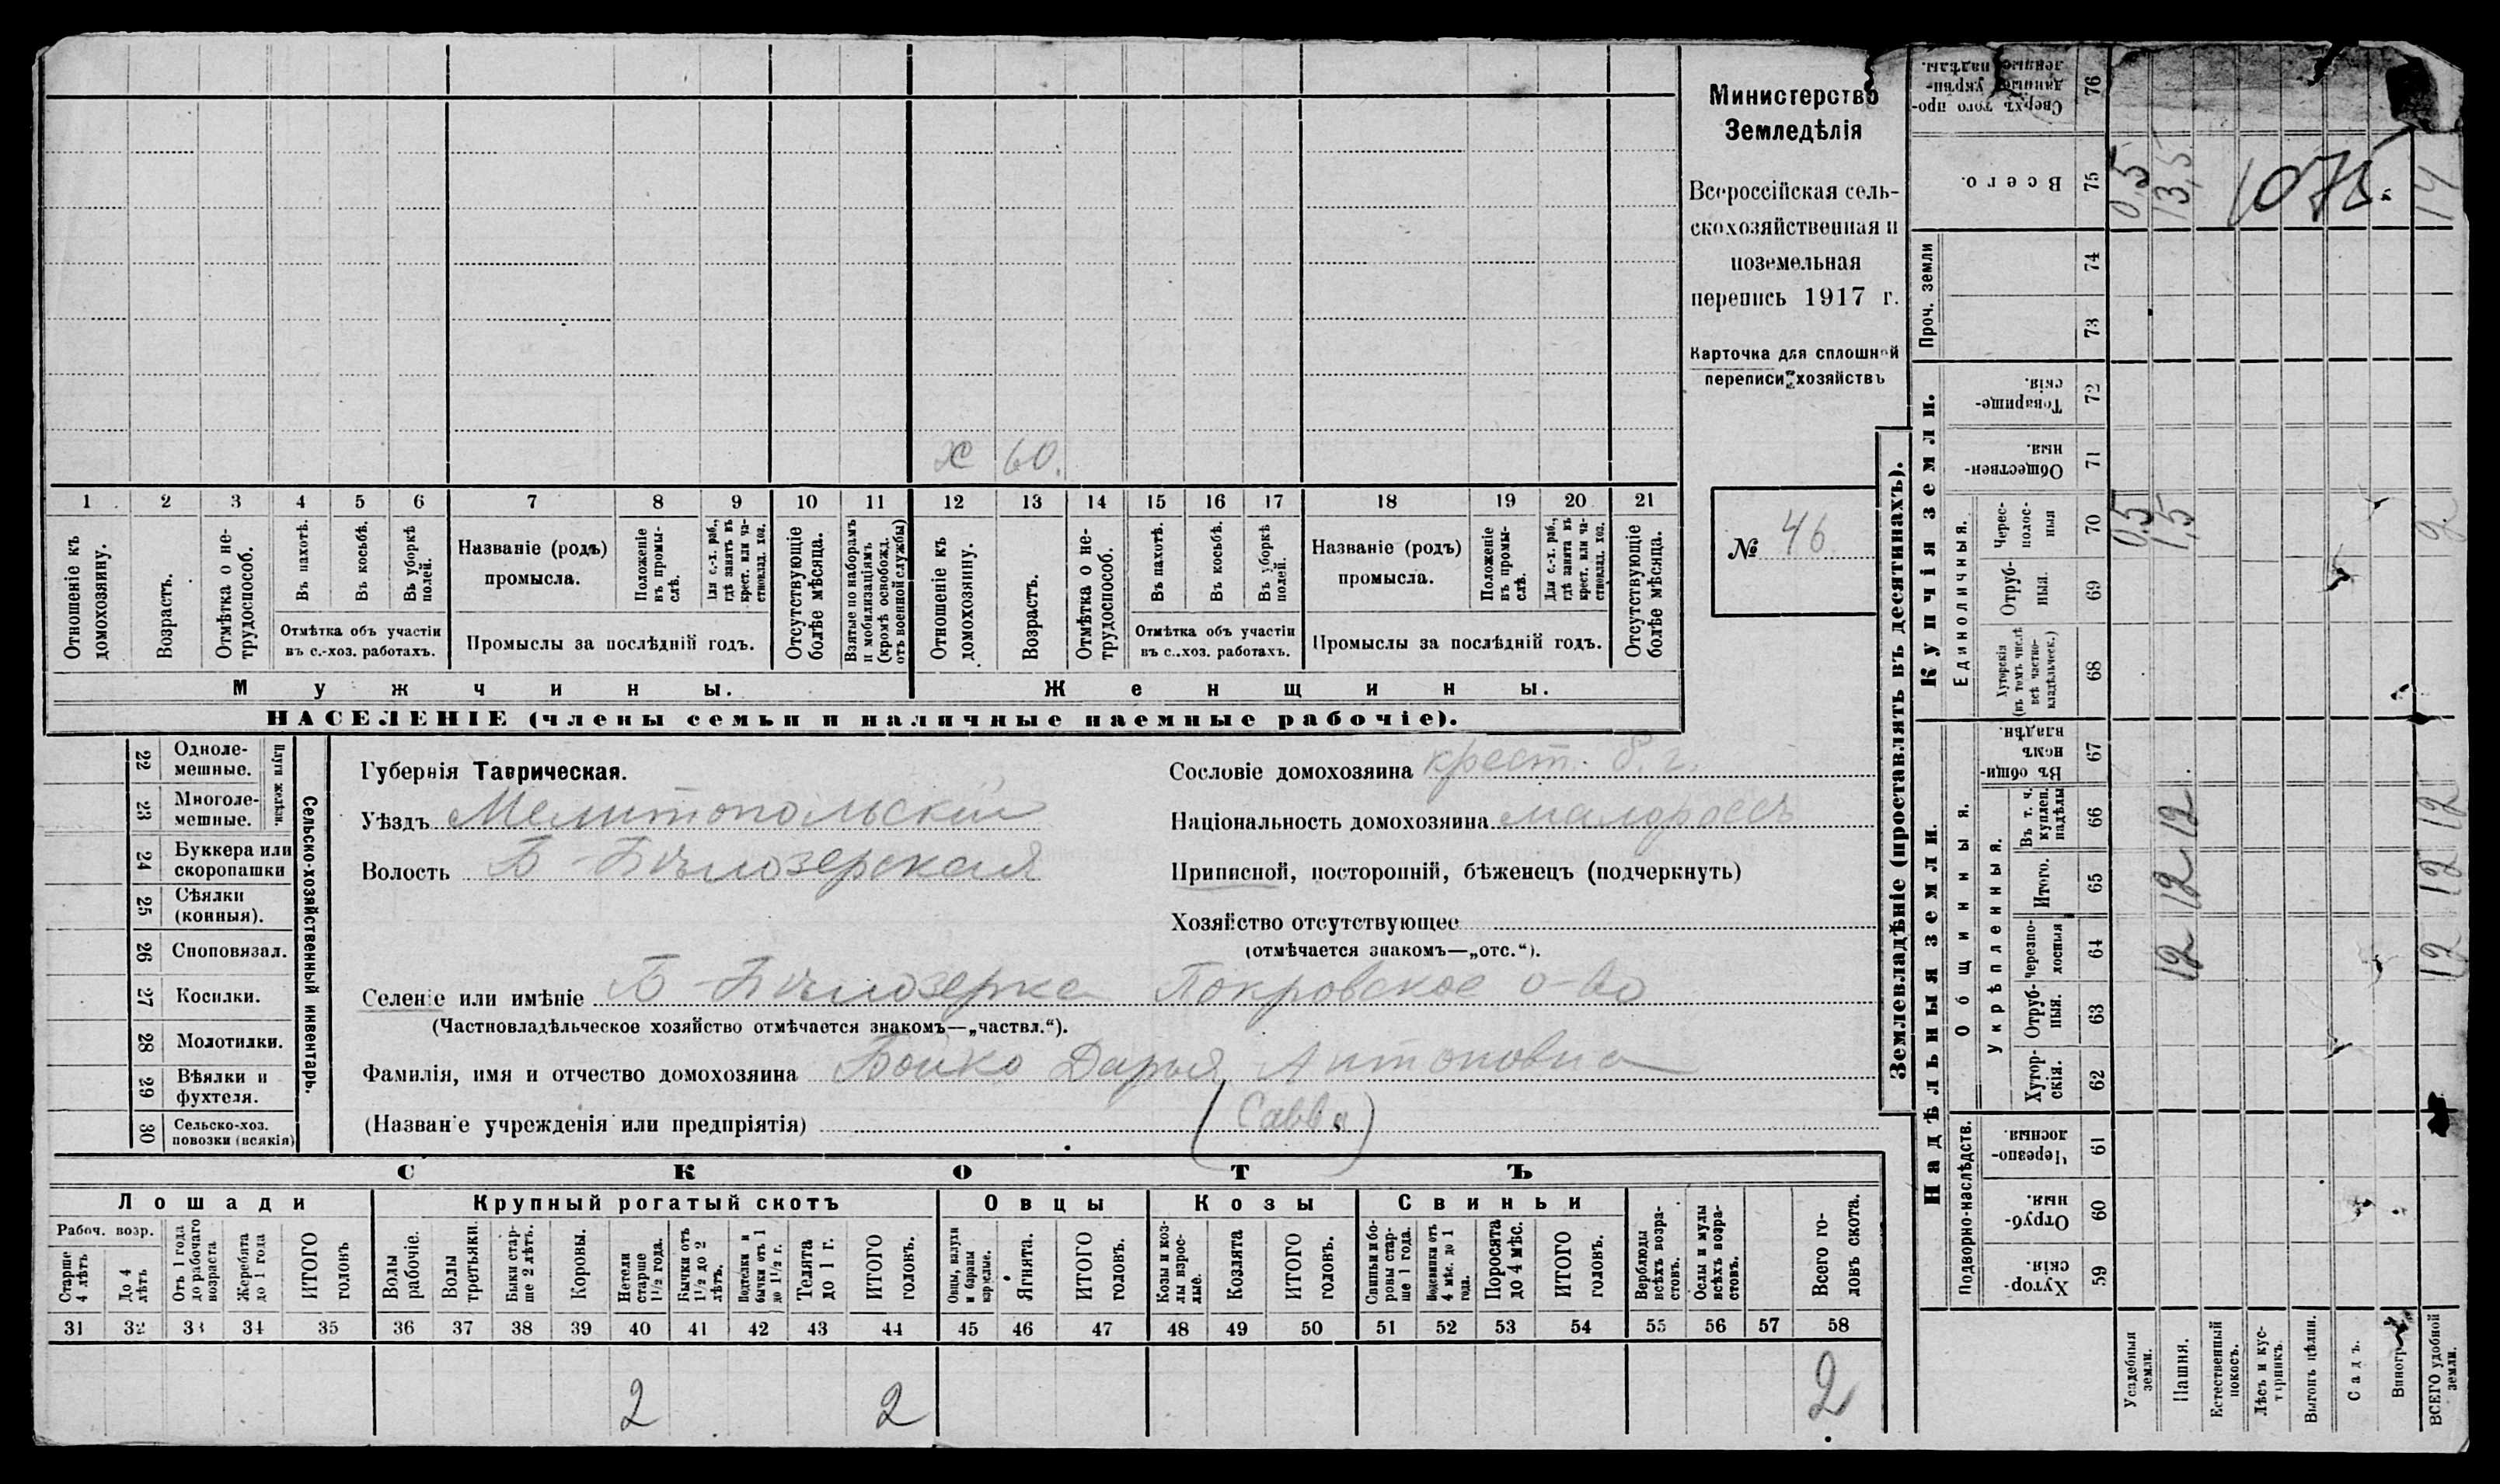 Министерство
Земледѣлія
Всероссійская сель-
скохозяйственная и
поземельная
перепись 1917 г.
Карточка для сплошной
переписи хозяйствъ
№ 46
х 60.
1 2 3 4 5 6 7 8 9 10 11 12 13 14 15 16 17 18 19 20 21
Отношеніе къ домохозяину.
Возрастъ.
Отмѣтка о не-трудоспособ.
Въ пахотѣ.
Въ косьбѣ.
Въ уборкѣ полей.
Отмѣтка объ участіи
въ с.-хоз. работахъ.
Названіе (родъ)
промысла.
Положеніе въ промы-слѣ.
Для с.-х. раб., гдѣ занятъ въ крест. или ча-стновлад. хоз.
Промыслы за послѣдній годъ.
Отсутствующіе болѣе мѣсяца.
Взятые по наборамъ и мобилизаціямъ (кромѣ освобожд. отъ военной службы)
Отношеніе къ домохозяину.
Возрастъ.
Отмѣтка о не-трудоспособ.
Въ пахотѣ.
Въ косьбѣ.
Въ уборкѣ полей.
Отмѣтка объ участіи
въ с.-хоз. работахъ.
Названіе (родъ)
промысла.
Положеніе въ промы-слѣ.
Для с.-х. раб., гдѣ занята въ крест. или ча-стновлад. хоз.
Промыслы за послѣдній годъ.
Отсутствующіе болѣе мѣсяца.
Мужчины. Женщины.
НАСЕЛЕНІЕ (члены семьи и наличные наемные рабочіе).
22 Одноле-мешные.
23 Многоле-мешные.
Плуги желѣзн.
24 Буккера или скоропашки
25 Сѣялки (конныя).
26 Сноповязал.
27 Косилки.
28 Молотилки.
29 Вѣялки и фухтеля.
30 Сельско-хоз. повозки (всякія)
Сельско-хозяйственный инвентарь.
Губернія Таврическая.
Уѣздъ Мелитопольскій
Волость Б-Бѣлозерская
Сословіе домохозяина крест. б. г.
Національность домохозяина малороссъ
Приписной, посторонній, бѣженецъ (подчеркнуть)
Хозяйство отсутствующее
(отмѣчается знакомъ—„отс.“).
Селеніе или имѣніе Б-Бѣлозерка Покровское о-во
(Частновладѣльческое хозяйство отмѣчается знакомъ—„частвл.“).
Фамилія, имя и отчество домохозяина Бойко Дарья Антоновна
(Названіе учрежденія или предпріятія) (Савва)
СКОТЪ
Лошади Крупный рогатый скотъ Овцы Козы Свиньи
Рабоч. возр.
Старше 4 лѣтъ
До 4 лѣтъ
Отъ 1 года до рабочаго возраста
Жеребята до 1 года
ИТОГО головъ
Волы рабочіе.
Волы третьяки.
Быки стар-ше 2 лѣтъ.
Коровы.
Нетели старше 1½ года.
Бычки отъ 1½ до 2 лѣтъ.
Подтелки и бычки отъ 1 до 1½ г.
Телята до 1 г.
ИТОГО головъ.
Овцы, валухи и бараны взрослые.
Ягнята.
ИТОГО головъ.
Козы и коз-лы взрос-лые.
Козлята
ИТОГО головъ.
Свиньи и бо-ровы стар-ше 1 года.
Подсвинки отъ 4 мѣс. до 1 года.
Поросята до 4 мѣс.
ИТОГО головъ.
Верблюды всѣхъ возра-стовъ.
Ослы и мулы всѣхъ возра-стовъ.
Всего го-ловъ скота.
31 32 33 34 35 36 37 38 39 40 41 42 43 44 45 46 47 48 49 50 51 52 53 54 55 56 57 58
2 2 2
Землевладѣніе (проставлять въ десятинахъ).
Надѣльныя земли. Купчія земли. Проч. земли
Подворно-наслѣдств.
Общинныя.
Укрѣпленныя.
Единоличныя.
Хутор-скія. 59
Отруб-ныя. 60
Черезпо-лосныя. 61
Хутор-скія. 62
Отруб-ныя. 63
Черезпо-лосныя 64
Итого. 65
Въ т. ч. куплен. надѣлы 66
Въ общи-номъ владѣн. 67
Хуторскія (въ томъ числѣ всѣ частно-владѣльческ.) 68
Отруб-ныя. 69
Черес-полос-ныя 70
Обществен-ныя. 71
Товарище-скія. 72
73
74
Всего. 75
Сверхъ того про-данные укрѣп-ленные надѣлы. 76
Усадебныя земли. 0,5 0,5
Пашня. 12 12 12 1,5 13,5
Естественный покосъ.
Лѣсъ и кус-тарникъ.
Выгонъ цѣлин.
Садъ.
Виногр
ВСЕГО удобной земли. 12 12 12 2 14
1075.